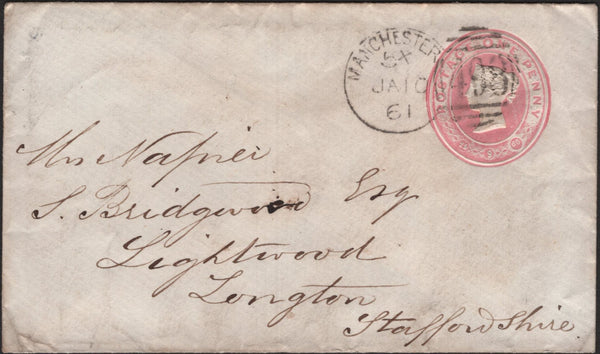 MANCHESTER
5X
JA 10
61
POSTAGE ONE PENNY
Mrs Napier
S. Bridgwood Esq
Lightwood
Longton
Staffordshire